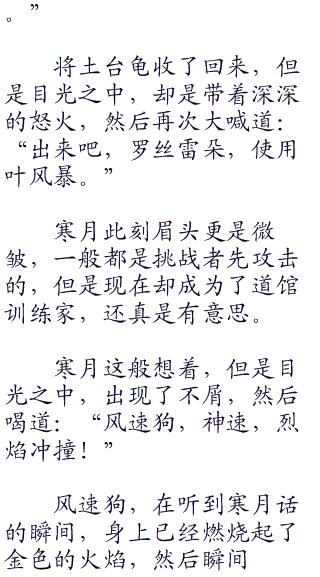 。”
将土台龟收了回来，但
是目光之中，却是带着深深
的怒火，然后再次大喊道：
“出来吧，罗丝雷朵，使用
叶风暴。”
寒月此刻眉头更是微
皱，一般都是挑战者先攻击
的，但是现在却成为了道馆
训练家，还真是有意思。
寒月这般想着，但是目
光之中，出现了不屑，然后
喝道：“风速狗，神速，烈
焰冲撞！”
风速狗，在听到寒月话
的瞬间，身上已经燃烧起了
金色的火焰，然后瞬间